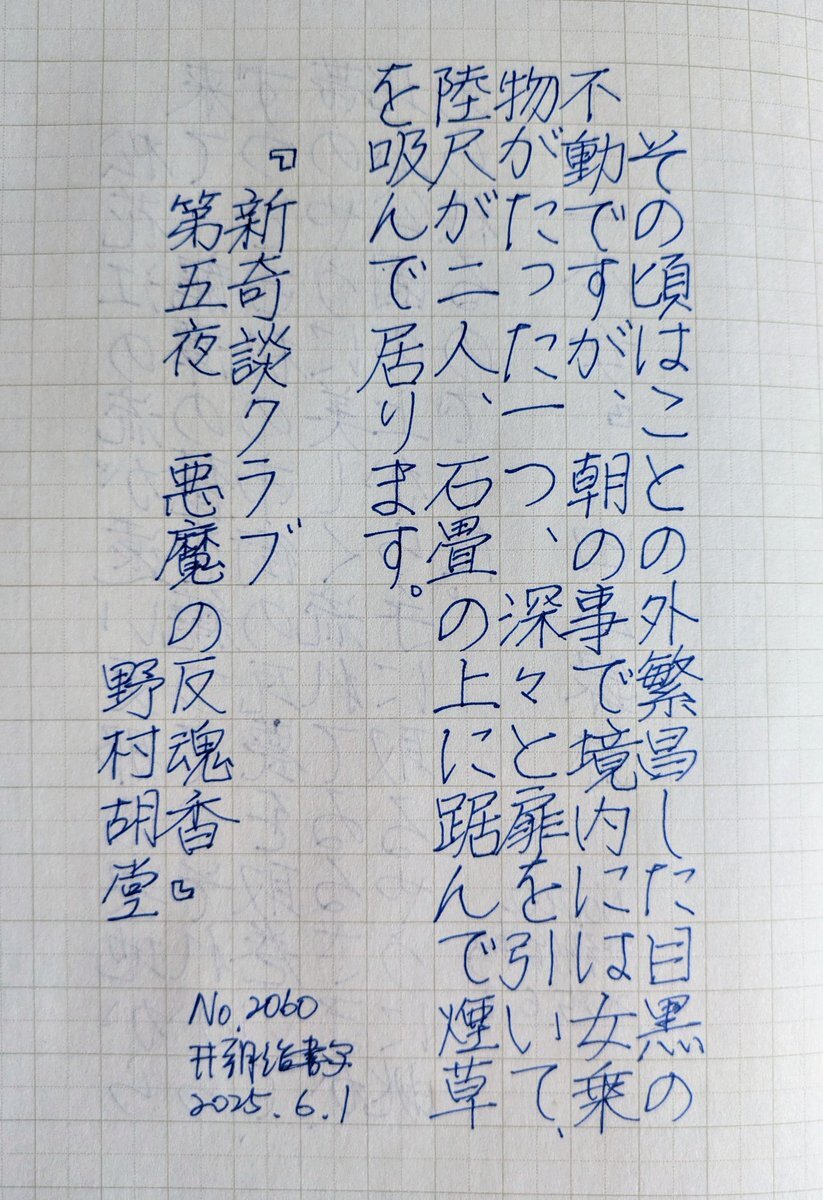 その頃はことの外繁昌した目黒の
不動ですが、朝の事で境内には女乗
物がたった一つ、深々と扉を引いて、
陸尺が二人、石畳の上に踞んで煙草
を吸んで居ります。
『新奇談クラブ
第五夜 悪魔の反魂香』
野村胡堂
No.2060
2025.6.1